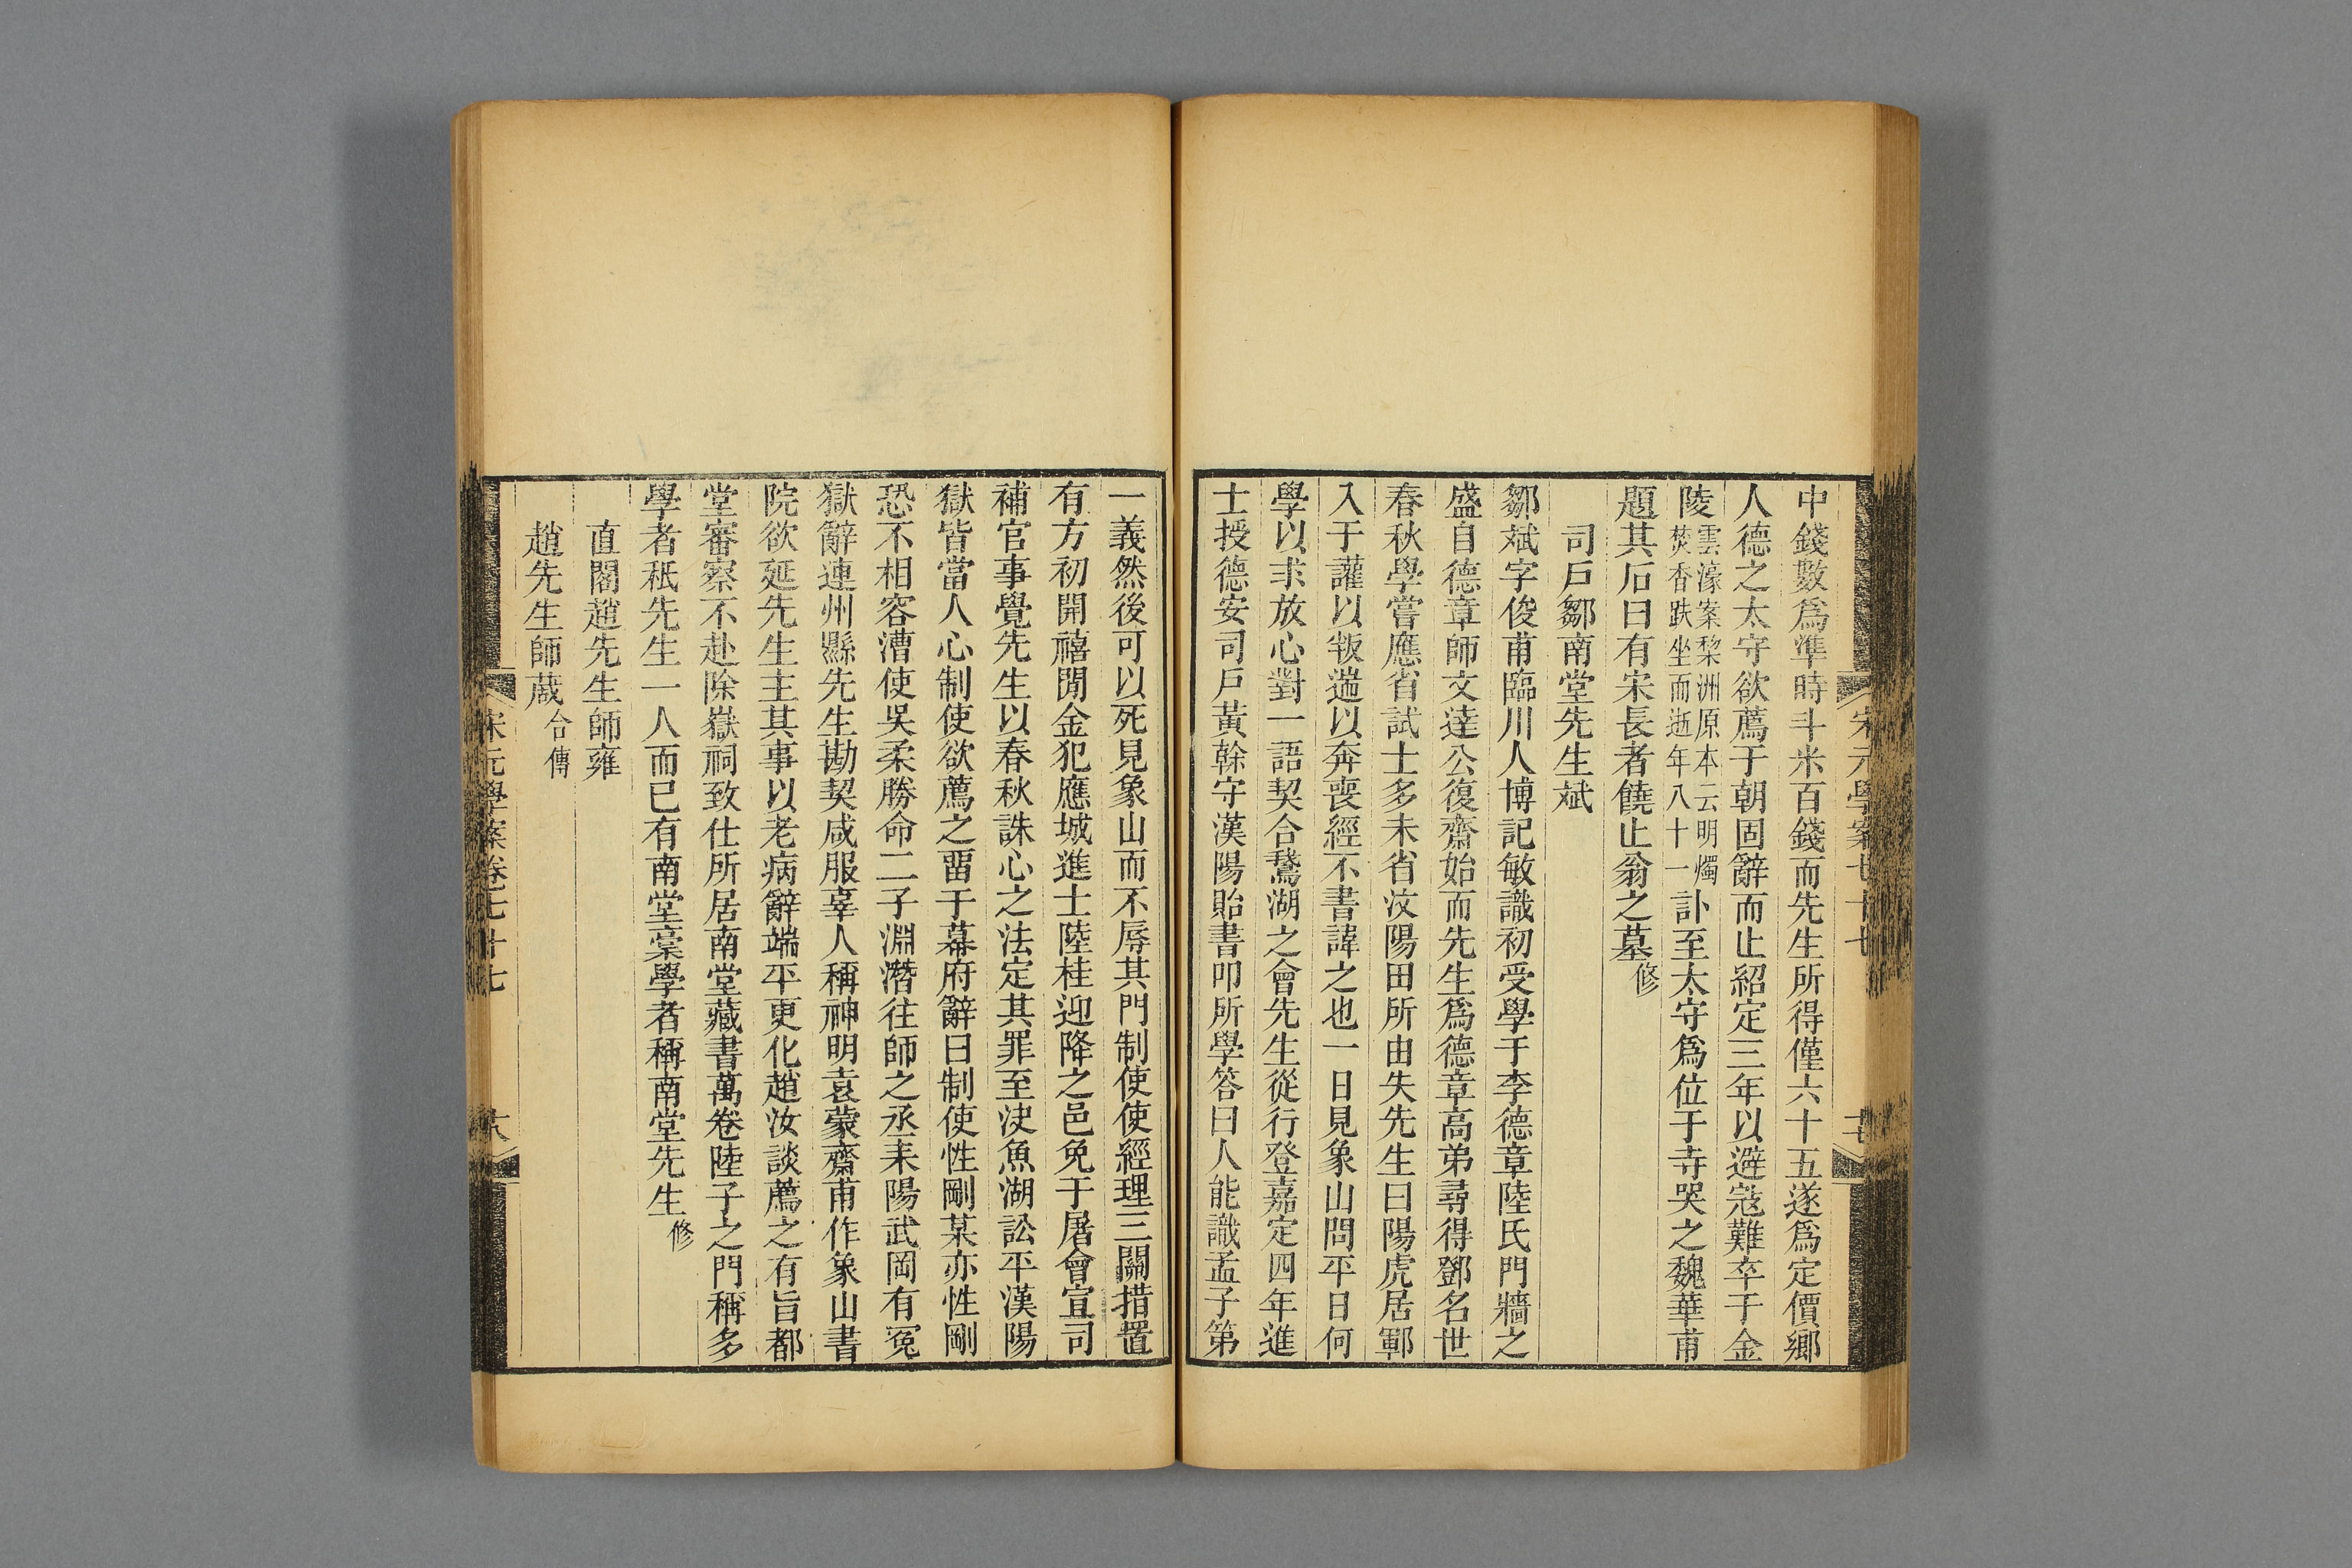 中錢數爲準時斗米百錢而先生所得僅六十五遂爲定價鄉
人德之太守欲薦于朝固辭而止紹定三年以避寇難卒于金
陵雲濠案黎洲原本云明燭焚香趺坐而逝年八十一訃至太守爲位于寺哭之魏華甫
題其石曰有宋長者饒止翁之墓修
司戸鄒南堂先生斌
鄒斌字俊甫臨川人博記敏識初受學于李德章陸氏門牆之
盛自德章師文達公復齋始而先生爲德章高弟尋得鄧名世
春秋學嘗應省試士多未省汶陽田所由失先生曰陽虎居鄆
入于讙以叛遄以奔喪經不書諱之也一日見象山問平日何
學以求放心對一語契合鵞湖之會先生從行登嘉定四年進
士授德安司戸黃榦守漢陽貽書叩所學答曰人能識孟子第
一義然後可以死見象山而不辱其門制使使經理三關措置
有方初開禧閒金犯應城進士陸桂迎降之邑免于屠會宣司
補官事覺先生以春秋誅心之法定其罪至決魚湖訟平漢陽
獄皆當人心制使欲薦之畱于幕府辭曰制使性剛某亦性剛
恐不相容漕使吳柔勝命二子淵潛往師之丞耒陽武岡有冤
獄辭連州縣先生勘契咸服辜人稱神明袁蒙齋甫作象山書
院欲延先生主其事以老病辭端平更化趙汝談薦之有旨都
堂審察不赴除嶽祠致仕所居南堂藏書萬卷陸子之門稱多
學者秖先生一人而已有南堂稾學者稱南堂先生修
直閣趙先生師雍
趙先生師蕆合傳
宋元學案卷七十七